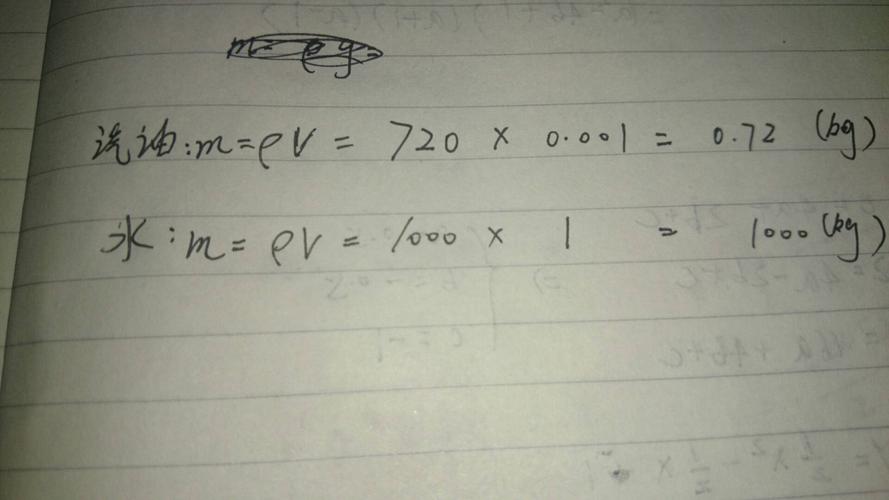 汽油:m=ρV = 720 × 0.001 = 0.72 (kg)
水:m = ρV = 1000 × 1 = 1000 (kg)